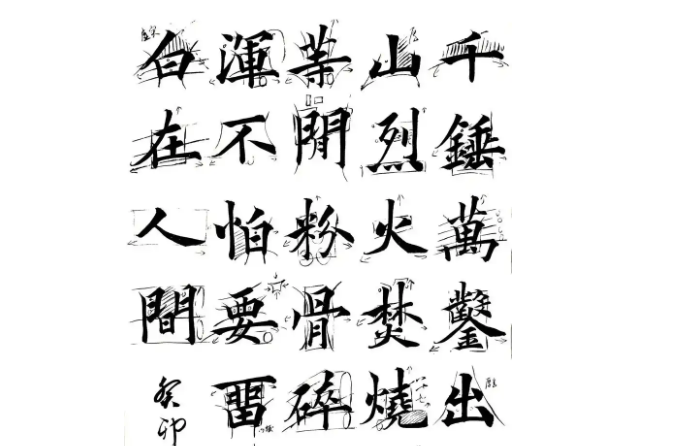 千錘萬鑿出
山烈火焚燒
等閒粉骨碎
渾不怕要留
白在人間
癸卯